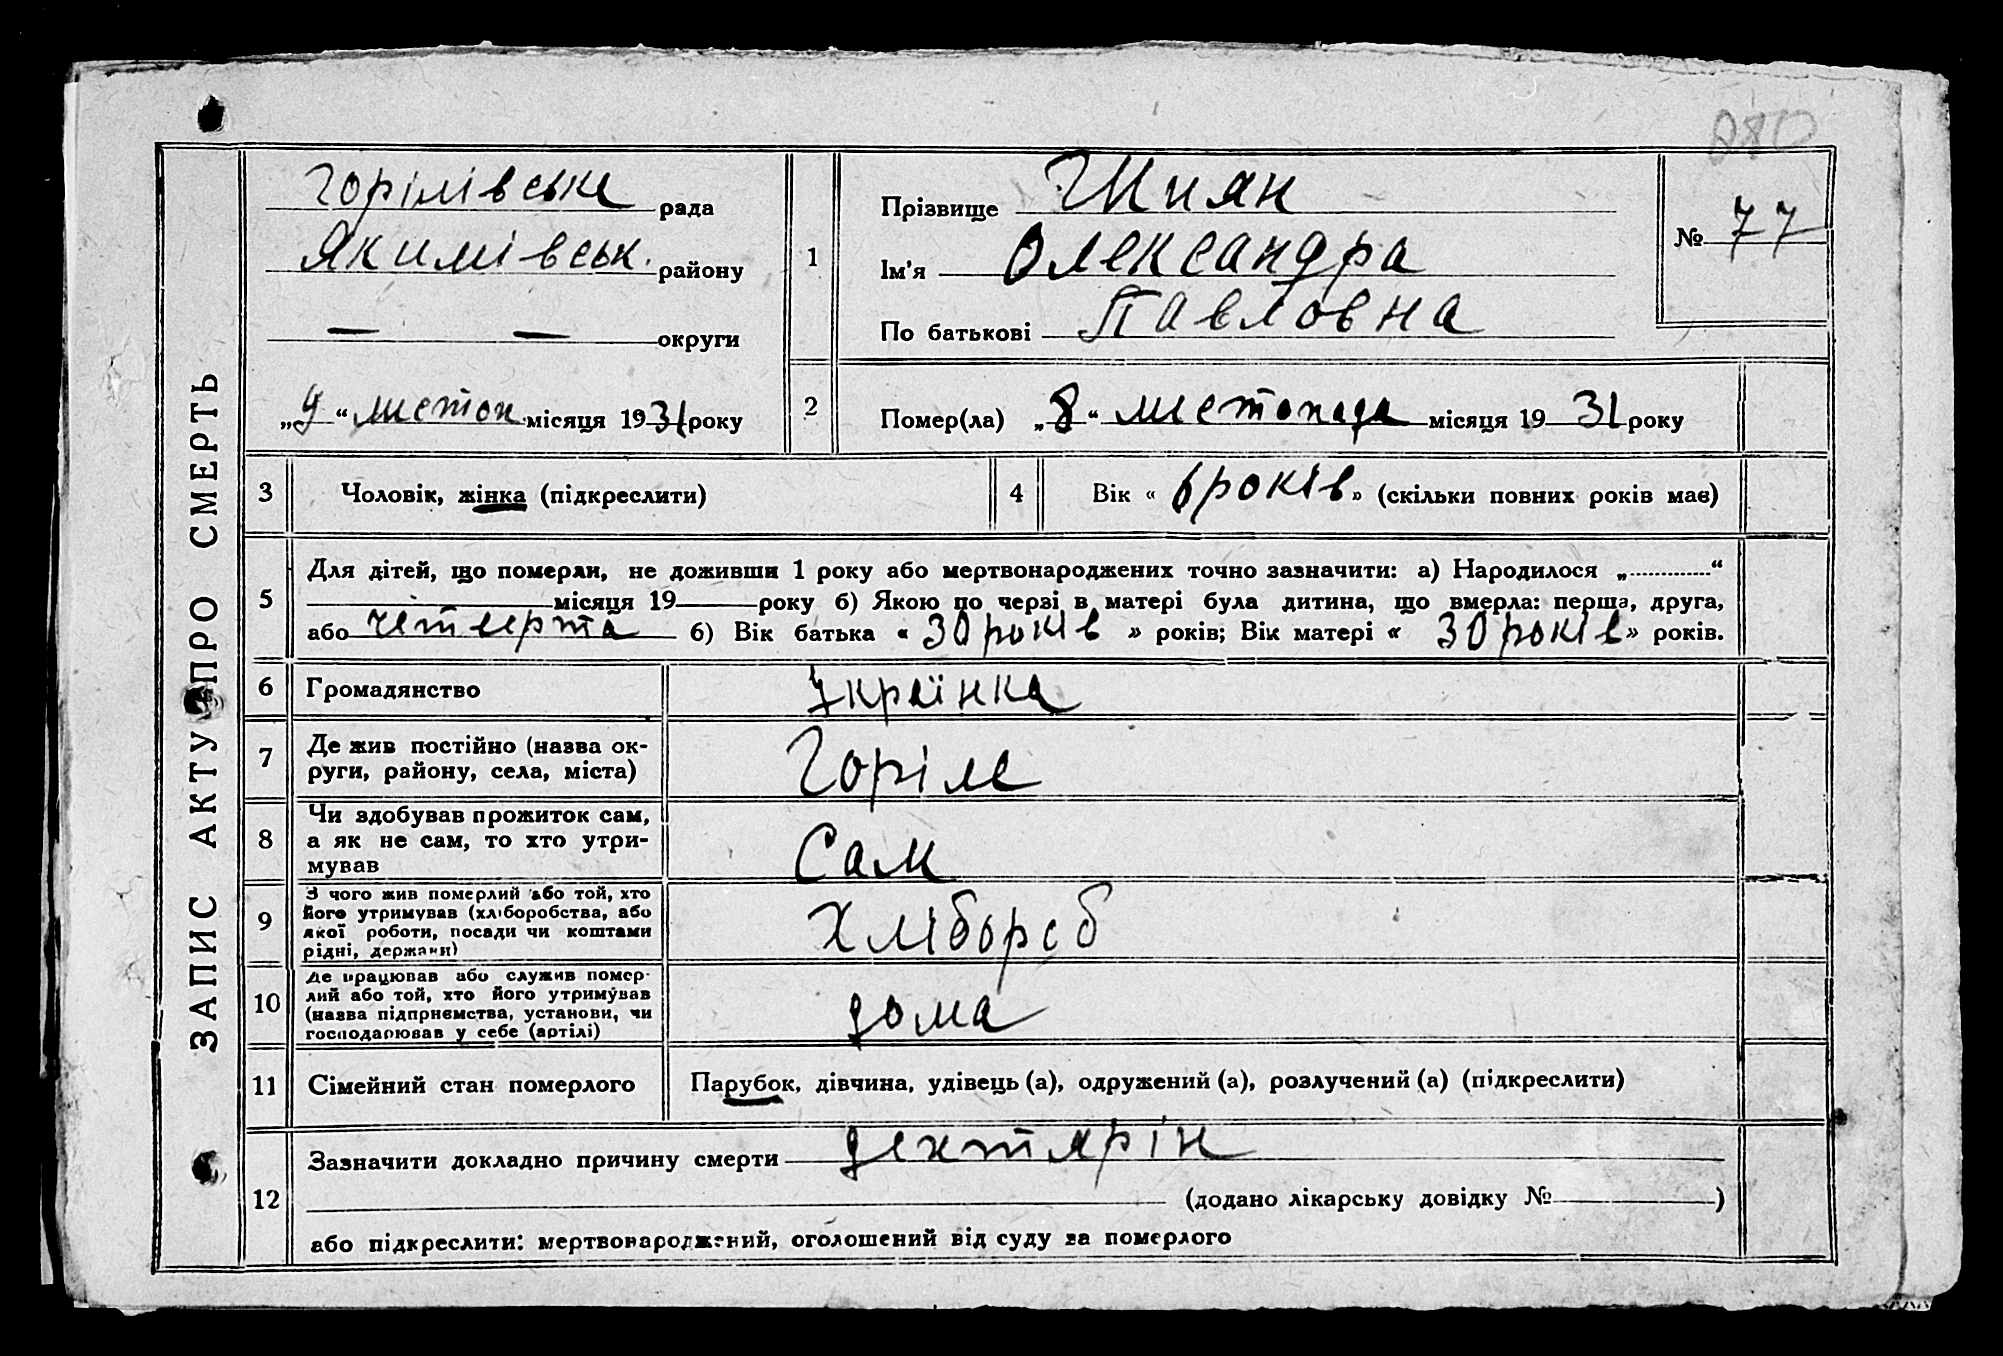 280
ЗАПИС АКТУ ПРО СМЕРТЬ
Горілівська рада
Якимівськ. району
— — округи
„9“ листоп. місяця 1931 року
1
Прізвище Шиян
Ім'я Олександра
По батькові Павловна
№ 77
2
Помер(ла) „8“ листопада місяця 1931 року
3 Чоловік, жінка (підкреслити)
4 Вік « 6 років » (скільки повних років має)
5
Для дітей, що померли, не доживши 1 року або мертвонароджених точно зазначити: а) Народилося „..............“
місяця 19 року б) Якою по черзі в матері була дитина, що вмерла: перша, друга,
або четверта б) Вік батька « 30 років » років; Вік матері « 30 років » років.
6 Громадянство Українка
7
Де жив постійно (назва ок-
руги, району, села, міста)
Горіле
8
Чи здобував прожиток сам,
а як не сам, то хто утри-
мував
Сам
9
З чого жив померлий або той, хто
його утримував (хліборобства, або
якої роботи, посади чи коштами
рідні, держави)
Хлібороб
10
Де працював або служив помер-
лий або той, хто його утримував
(назва підприємства, установи, чи
господарював у себе (артілі)
дома
11 Сімейний стан померлого Парубок, дівчина, удівець (а), одружений (а), розлучений (а) (підкреслити)
12
Зазначити докладно причину смерти дехтярін
(додано лікарську довідку № )
або підкреслити: мертвонароджений, оголошений від суду за померлого